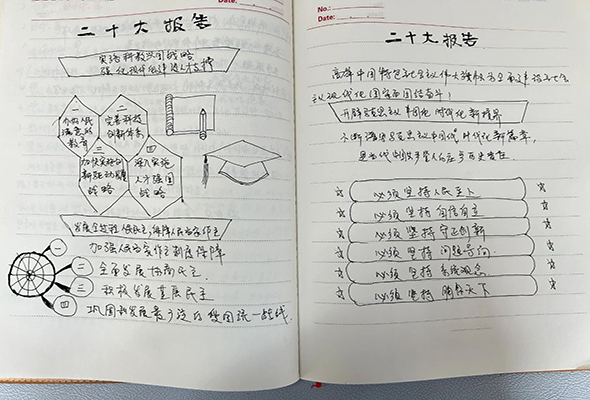 Date:
二十大报告
实施科教兴国战略
强化现代化建设人才支撑
一
办好人民
满意的
教育
二
完善科技
创新体系
三
加快实施创
新驱动发展
战略
四
深入实施
人才强国
战略
发展全过程人民民主,保障人民当家作主
一 加强人民当家作主制度保障
二 全面发展协商民主
三 积极发展基层民主
四 巩固和发展最广泛的爱国统一战线
No.:
Date:
二十大报告
高举中国特色社会主义伟大旗帜为全面建设社会
主义现代化国家而团结奋斗!
开辟马克思主义中国化时代化新境界
不断谱写马克思主义中国化时代化新篇章,
是当代中国共产党人的庄严历史责任
必须坚持人民至上
必须坚持自信自立
必须坚持守正创新
必须坚持问题导向
必须坚持系统观念
必须坚持胸怀天下